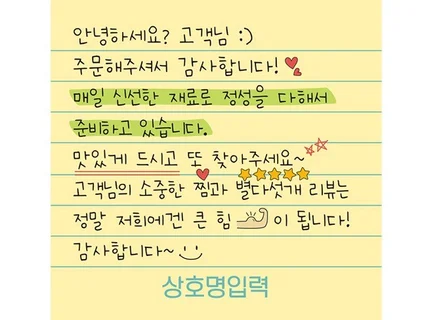 안녕하세요? 고객님 :)
주문해주셔서 감사합니다!
매일 신선한 재료로 정성을 다해서
준비하고 있습니다.
맛있게 드시고 또 찾아주세요~
고객님의 소중한 찜과 별다섯개 리뷰는
정말 저희에겐 큰 힘 이 됩니다!
감사합니다~
상호명입력